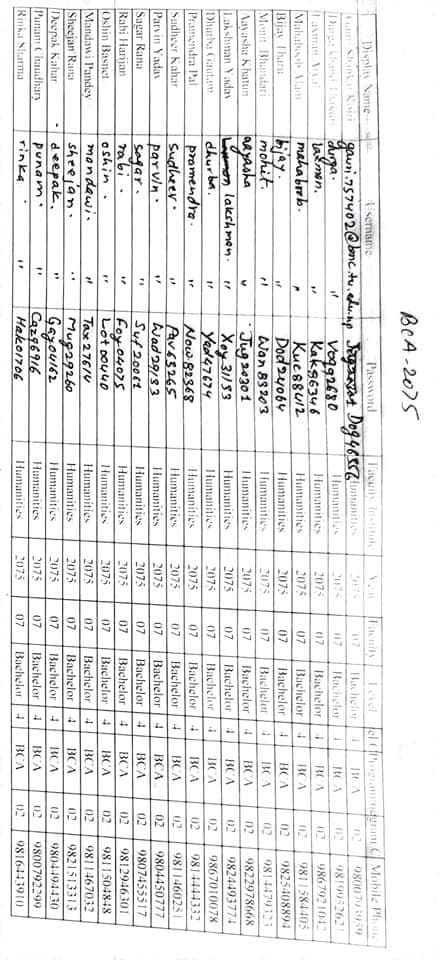 BCA-2075
Display Name Username Password Faculty Institute Year Faculty Level Programme Mobile Phone
Gauri Shankar Koiri gauri.757402@bmc.tu.edu.np Dog46356 Humanities 2075 07 Bachelor 4 BCA 02 9800793939
Durga durga. " Vogg2680 Humanities 2075 07 Bachelor 4 BCA 02 9819952621
Laxman Aryal laxman. " Kak86346 Humanities 2075 07 Bachelor 4 BCA 02 9867921042
Mahaboob Alam mahaboob. " Kuc88412 Humanities 2075 07 Bachelor 4 BCA 02 9811584405
Bijay Tharu bijay. " Dod24064 Humanities 2075 07 Bachelor 4 BCA 02 9825408894
Mohit Bhandari mohit. " Wan83203 Humanities 2075 07 Bachelor 4 BCA 02 9814479323
Aayasha Khatun aayasha " Jug20301 Humanities 2075 07 Bachelor 4 BCA 02 9822978668
Lakshman Yadav lakshman. " Xoy31133 Humanities 2075 07 Bachelor 4 BCA 02 9824493774
Dhurba Gautam dhurba. " Yad47674 Humanities 2075 07 Bachelor 4 BCA 02 9867010078
Pramendra Pal pramendra. " Now82368 Humanities 2075 07 Bachelor 4 BCA 02 9814444332
Sudheer Kahar sudheer. " Pav63265 Humanities 2075 07 Bachelor 4 BCA 02 9811460251
Parvin Yadav parvin. " Wad29133 Humanities 2075 07 Bachelor 4 BCA 02 9804450777
Sagar Rana sagar. " Suf20061 Humanities 2075 07 Bachelor 4 BCA 02 9807455517
Rabi Harijan rabi. " Foy04075 Humanities 2075 07 Bachelor 4 BCA 02 9812946301
Oshin Basnet oshin. " Lot00440 Humanities 2075 07 Bachelor 4 BCA 02 9811504848
Mandawi Pandey mandawi. " Tax27614 Humanities 2075 07 Bachelor 4 BCA 02 9811467032
Sheejan Rana sheejan. " Mug29260 Humanities 2075 07 Bachelor 4 BCA 02 9821513313
Deepak Kahar deepak. " Gay04162 Humanities 2075 07 Bachelor 4 BCA 02 9804494430
Punam Chaudhary punam. " Caz96916 Humanities 2075 07 Bachelor 4 BCA 02 9800792299
Rinka Sharma rinka " Hak01706 Humanities 2075 07 Bachelor 4 BCA 02 9816443910